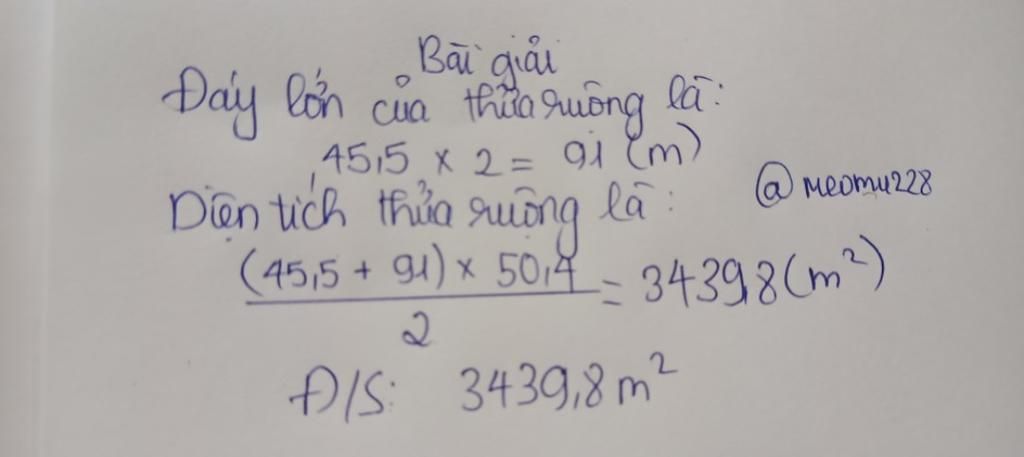 Bài giải
Đáy lớn của thửa ruộng là:
45,5 × 2 = 91 (m)
Diện tích thửa ruộng là:
@meomu228
(45,5 + 91) × 50,4 / 2 = 3439,8 (m²)
Đ/S: 3439,8 m²